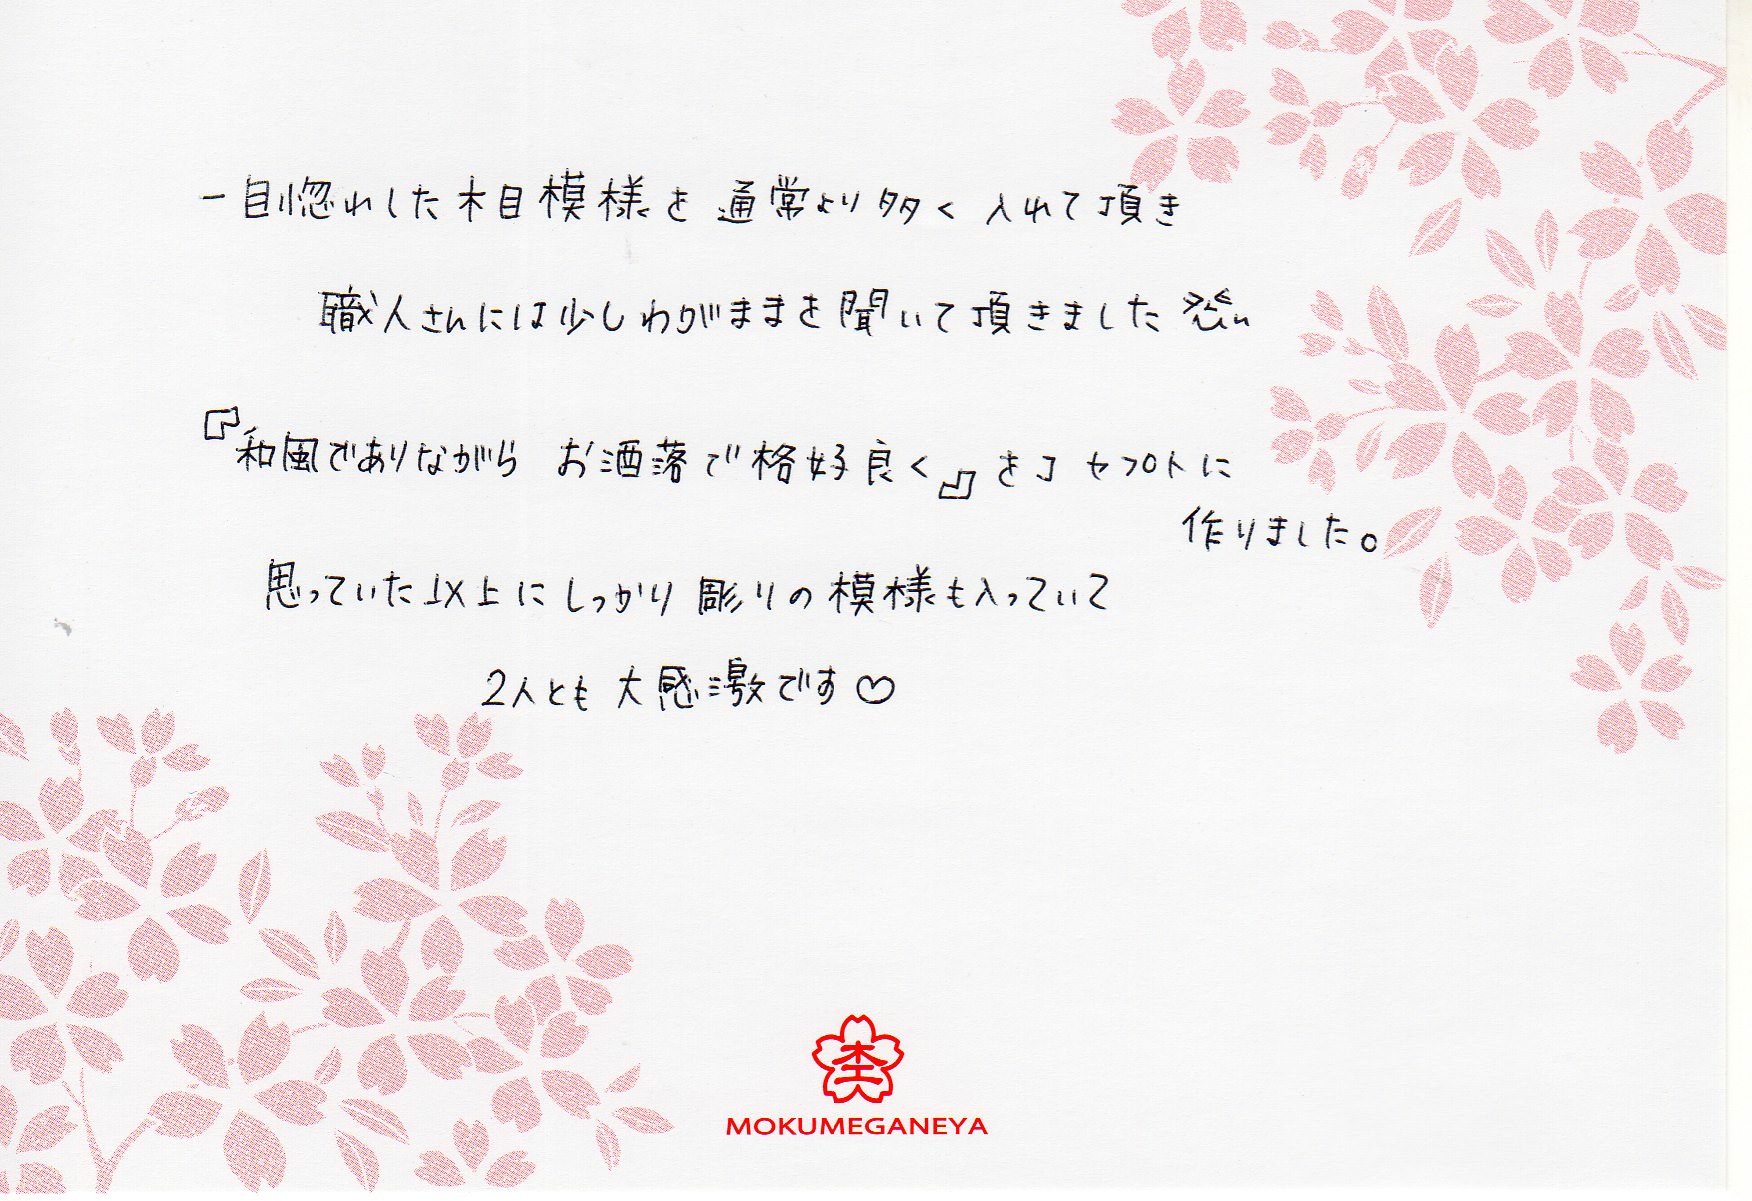 一目惚れした木目模様を通常より多く入れて頂き
職人さんには少しわがままを聞いて頂きました
『和風でありながら お洒落で格好良く』をコセプトに
作りました。
思っていた以上にしっかり彫りの模様も入っていて
2人とも大感激です♡
MOKUMEGANEYA